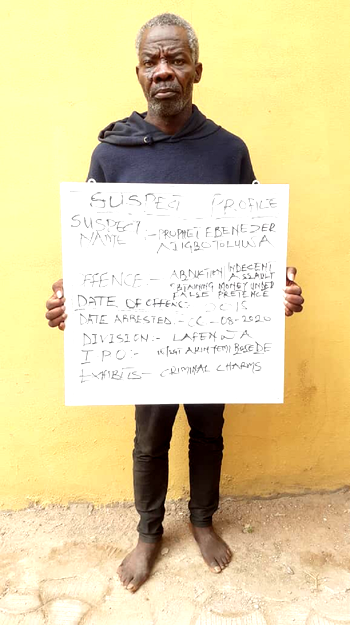 SUSPECT PROFILE
SUSPECT
NAME :- PROPHET EBENEZER
AJIGBOTOLUWA
OFFENCE :- ABDUCTION/INDECENT
ASSAULT
OBTAINING MONEY UNDER
FALSE PRETENCE
DATE OF OFFENCE:- 2015
DATE ARRESTED :- -08-2020
DIVISION :- LAFENWA
I P O :- AKINYEMI
EXHIBITS - CRIMINAL CHARMS